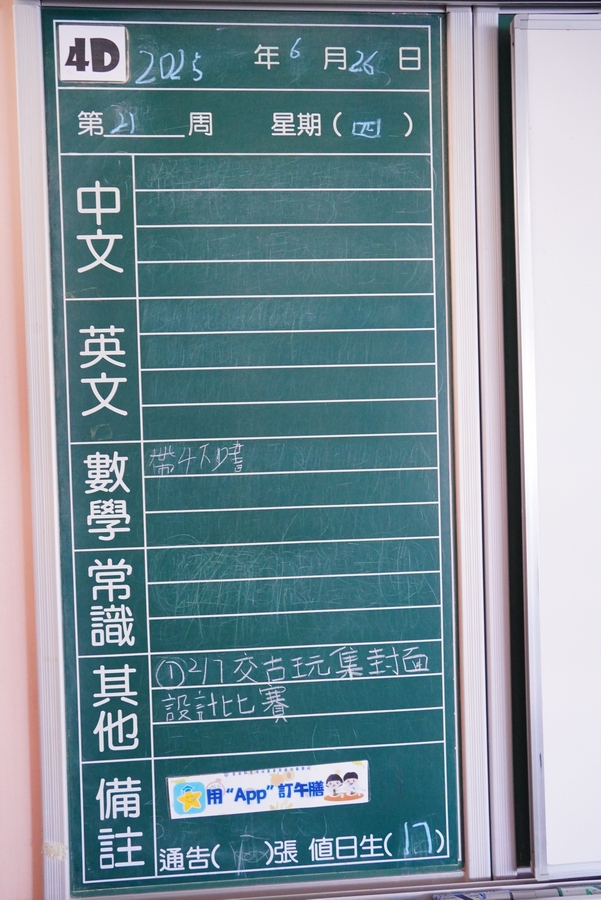 4D 2025 年 6 月 26 日
第 21 周 星期 ( 四 )
中文
英文
數學 帶4下書
常識
其他 ①2/7交古玩集封面
設計比賽
備註
用“App”訂午膳
通告( )張 值日生( 17 )